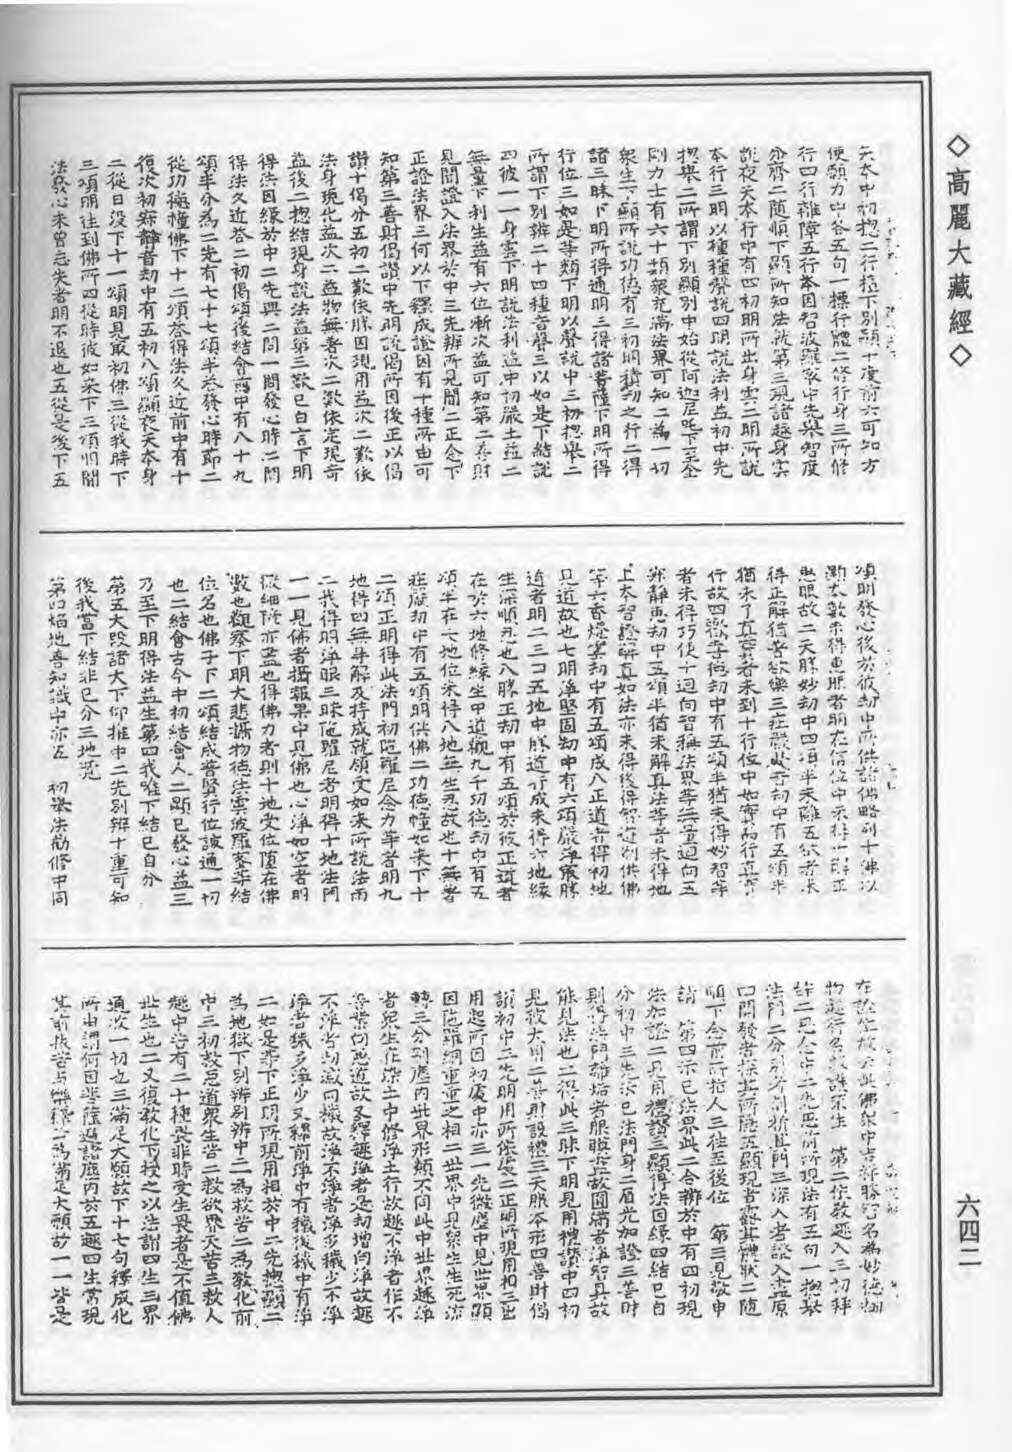 ◇高麗大藏經◇
六四二
天本中初摠二行極下別顯十度前六可知方
便願力中各五句一標行體二修行身三所修
行四行離障五行本因智波羅蜜中先舉智度
分齊二隨順下顯所知法就第三現諸趣身雲
說夜天本行中有四初明所出身雲二明所說
本行三明以種種聲說四明說法利益初中先
摠舉二所謂下別顯別中始從阿迦尼吒下至金
剛力士有六十類衆充滿法界可知二為一切
衆生下顯所說功德有三初明積劫之行二得
諸三昧下明所得通明三得諸菩薩下明所得
行位三如是等類下明以聲說中三初摠舉二
所謂下別辨二十四種音聲三以如是下結說
四彼一一身雲下明說法利益中初嚴土益二
無量下利生益有六位漸次益可知第二善財
見聞證入法界於中三先辨所見聞二正念下
正證法界三何以下釋成證因有十種所由可
知第三善財偈讚中先明說偈所因後正以偈
讚十偈分五初二歎依勝因現用益次二歎依
法身現化益次二益物無著次二歎依定現奇
益後二摠結現身說法益第三歎已白言下明
得法因緣於中二先興二問一問發心時二問
得法久近答二初偈頌後結會前中有八十九
頌半分為二先有七十七頌半答發心時節二
從功德幢佛下十二頌答得法久近前中有十
復次初寂靜音劫中有五初八頌顯夜天本身
二從日沒下十一頌明見最初佛三從我時下
三頌明往到佛所四從時彼如來下三頌明聞
法發心未曾忘失者明不退也五從是後下五
頌明發心後於彼劫中亦供諸佛略列十佛以
顯大數未得惠眼者明在信位中未得十解正
惠眼故二天勝妙劫中四頌半未離五欲者未
得正解猶者欲樂三
猶未了真實者未到十行位中如實行真實
行故四歡喜德劫中有五頌半猶未得妙智等
者未得巧使十迴向智稱法界等無量迴向五
寂靜惠劫中五頌半猶未解真法等者未得地
上本智證解真如法亦未得後得智近別供佛
等六香燈雲劫中有五頌成八正道者得初地
見道故也七明淨堅固劫中有六頌嚴淨最勝
道者明二三四五地中勝道行成未得六地緣
生深順忍也八勝王劫中有五頌於彼正道者
在於六地修緣生中道觀九千功德劫中有五
頌半在七地位未得八地無生忍故也十無著
莊嚴劫中有五頌明供佛二功德幢如來下十
二頌正明得此法門初陀羅尼念力等者明九
地得四無㝵解及持成就領受如來所說法雨
二我得明淨眼三昧陀羅尼者明得十地法門
一一見佛者攝報果中具佛也心淨如空者明
微細
數也觀察下明大悲攝物德法雲波羅蜜等結
位名也佛子下二頌結成普賢行位該通一切
也二結會古今中初結會人二顯已發心益三
乃至下明得法益生第四我唯下結已自分
第五大段諸大下仰推中二先別辨十重可知
後我當下結非已分三地竟
第四焰地善知識中亦五　初舉法勸修中同
門二分
口問發者
順下念前所指人三往至後位　第三見敬申
請　第四示已法界此二合辨於中有四初現
法加證二見用禮讚三顯得法因緣四結已自
分初中三先示已法門身二眉光加證三善財
則得法門離垢者
能見法也二得此三昧下明見用禮讚中四初
見放大用二善財設禮三天照本形四善財偈
讚初中二先明用所依處二正明所現用相三出
用起所因初處中亦三一光微塵中見世界顯
因陀羅網重重之相二世界中見衆生生死流
轉三分別塵內世界形類不同此中世界趣淨
者衆生在染土中修淨土行故趣不淨者作不
善業向惡道故又釋趣淨者是劫增向淨故趣
不淨者劫減向穢故淨不淨者淨多穢少不淨
淨者穢多淨少又釋前淨中有穢後穢中有淨
二如是等下正明所現用相於中二先摠顯二
為地獄下別辨別辨中二為救苦二為教化前
中三初救惡道衆生苦二救欲界天苦三救人
趣中苦有二十種畏非時受生畏者是不值佛
世生也二又復教化下授之以法謂四生三界
通次一切也三滿足大願故下十七句釋成化
所由謂何因菩薩遍諸塵內於五趣四生常現
其前救苦與樂釋云為滿足大願故一一皆是